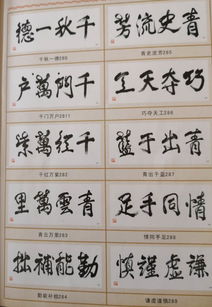 千秋一德
千秋一德
青史流芳
青史流芳285
千門萬户
千门万户
巧夺天工
巧夺天工286
千红萬紫
千红万紫
青出于蓝
青出于蓝287
青雲萬里
青云万里
情同手足
情同手足288
勤能補拙
勤能补拙284
謙虚謹慎
谦虚谨慎289